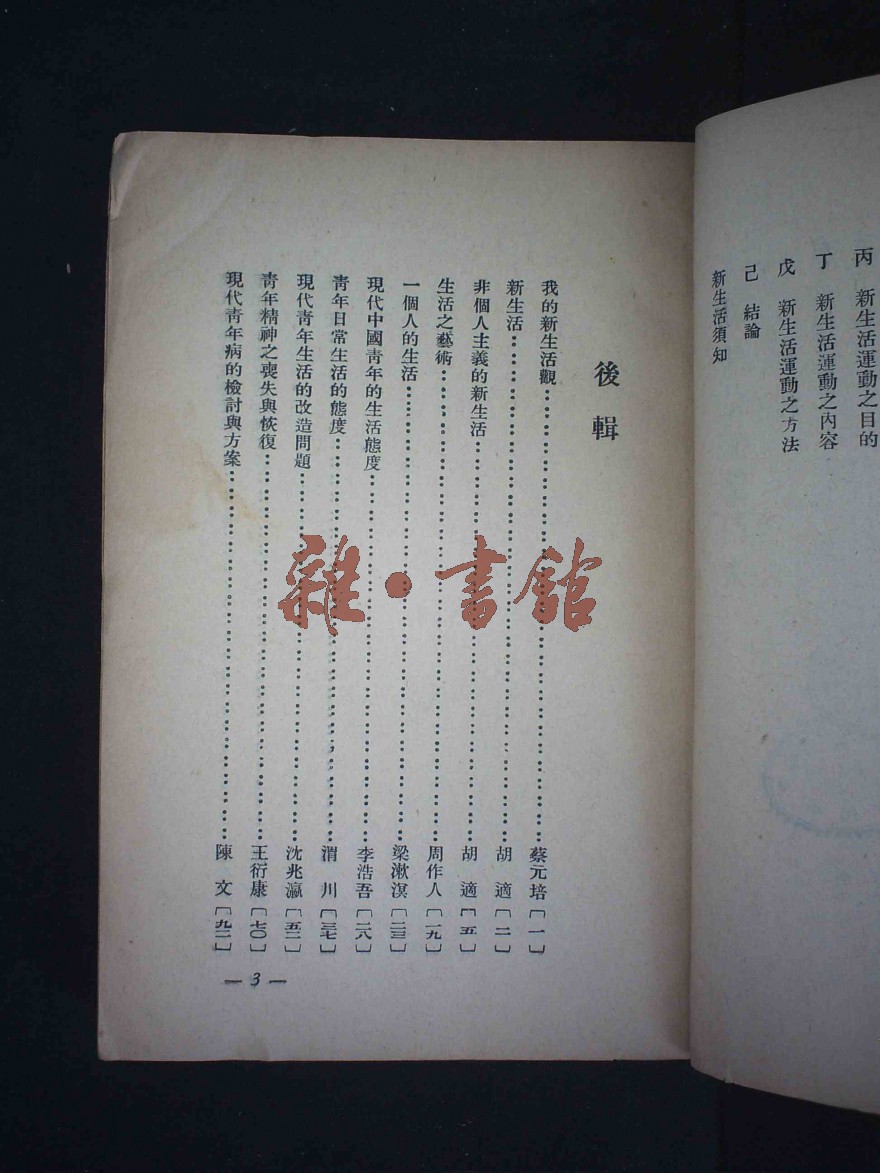 丙　新生活運動之目的
丁　新生活運動之內容
戊　新生活運動之方法
己　結論
新生活須知
後輯
我的新生活觀⋯⋯蔡元培〔一〕
新生活⋯⋯胡　適〔二〕
非個人主義的新生活⋯⋯胡　適〔五〕
生活之藝術⋯⋯周作人〔一九〕
一個人的生活⋯⋯梁漱溟〔二三〕
現代中國青年的生活態度⋯⋯李浩吾〔二八〕
青年日常生活的態度⋯⋯渭　川〔三七〕
現代青年生活的改造問題⋯⋯沈兆瀛〔五二〕
青年精神之喪失與恢復⋯⋯王衍康〔七〇〕
現代青年病的檢討與方案⋯⋯陳　文〔九二〕
— 3 —
雜·書館